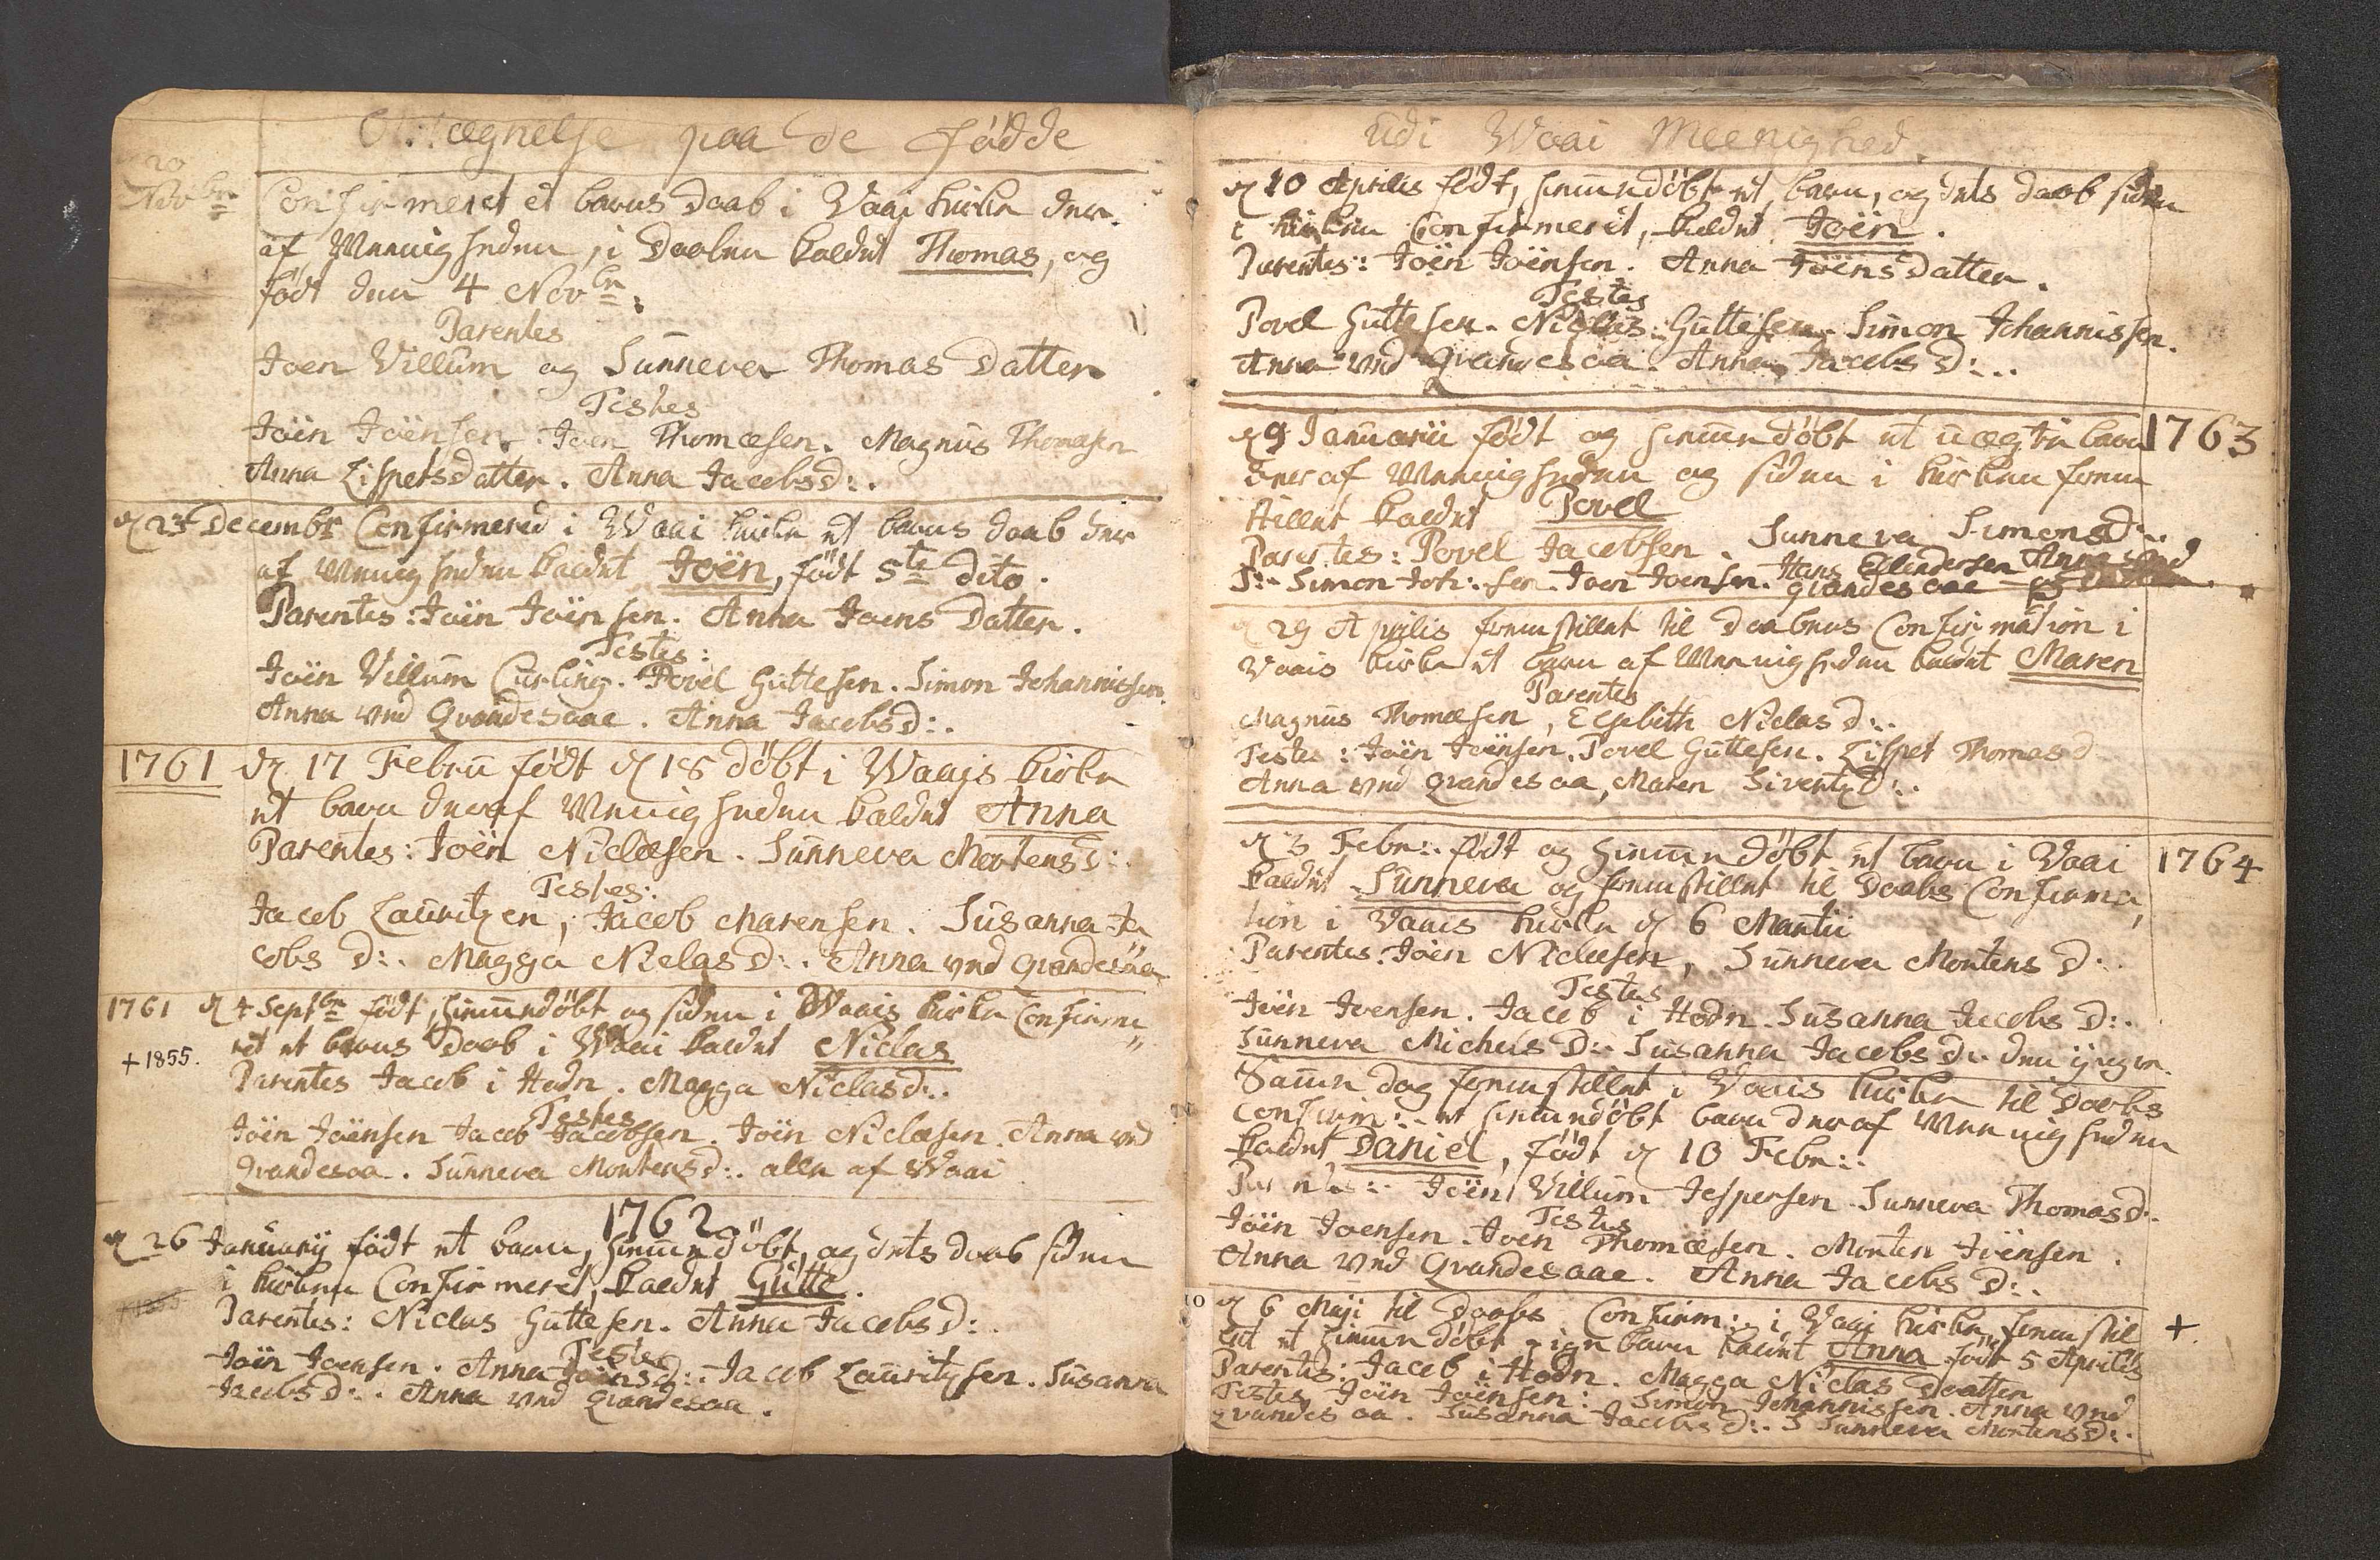 Antægnelse paa de födde
20
Novbr
Confirmeret et barns Daab i Vaaj kirke her
af Meenigheden, i Daaben kaldet Thomas, og
födt den 4 Novbr:
Parentes
Joen Villum og Sunneva Thomas Datter
Testes
Joën Joënsen. Joen Thomæsen. Magnus Thomæsen
Anna Lispetsdatter. Anna Jacobsd:.
d 23 Decembr Confirmered i Waai kirke et barns daab her
af Meenigheden kaldet Joën, födt 5te dito.
Parentes: Joën Joënsen. Anna Joens Datter.
Testes:
Joën Villum Curling. Povel Guttesen. Simon Johannissen.
Anna ved Qvandesaae. Anna Jacobsd:.
1761 d 17 Febru födt d 18 döbt i Waajs kirke
et barn heraf Meenigheden kaldet Anna
Parentes: Joën Niclæsen. Sunneva Mortensd:.
Testes:
Jacob Lauritzen, Jacob Marensen. Susanna Ja
cobs D:. Magga Niclas D:. Anna ved Qvandesaa
1761 d 4 Septbr födt, hiemmedöbt og siden i Waajs kirke Confirme
ret et barns Daab i Waai kaldet Niclas
+ 1855.
Parentes Jacob i Hodn. Magga Niclasd:.
Testes
Joën Joënsen Jacob Jacobsen. Joën Niclæsen. Anna ved
Qvandesaa. Sunneva Mortensd:. alle af Waai
1762
d 26 Januarij födt et barn, hiemmedöbt, og dets daab siden
i kirken Confirmeret, kaldet Gutte.
Parentes: Niclas Guttesen. Anna Jacobsd:.
Testes
Joën Joensen. Anna Joensd:. Jacob Lauritzsen. Susanna
Jacobsd:. Anna ved Qvandesaa.
udi Waai Meenighed.
d 10 Aprilis födt, hiemmedöbt et barn, og dets daab siden
i kirken Confirmerit, kaldet Joën.
Parentes: Joën Joënsen. Anna Joens Datter.
Testes
Povel Guttesen. Niclas Guttesen. Simon Johannissen.
Anna ved Qvandesaa. Anna Jacobs D:..
1763
d 9 Januarii födt og hiemmedöbt et uægte barn
her af Meenigheden og siden i kirken frem
stillet kaldet Povel
Parentes: Povel Jacobsen. Sunneva Simonsd:.
T:. Simon Joh:sen. Joen Joensen. Hans Ellendersen Anna ved
Qvandesaae
d 29 Aprilis fremstillet til Daabens Confirmation i
Vaais kirke et barn af Meenigheden kaldet Maren
Parentes
Magnus Thomæsen, Elsebith Niclas d:.
Testes: Joën Joënsen. Povel Guttesen. Lispet Thomas d
Anna ved Qvandesaa, Maren Siverts D:.
1764
d 3 Febr:. födt og hiemmedöbt et barn i Vaai
kaldet Sunneva og fremstillet til Daabs Confirma
tion i Vaais kirke d 6 Martii
Parentes: Joën Niclæsen, Sunneva Mortens D:.
Testes
Joën Joensen. Jacob i Hodn. Susanna Jacobs D:.
Sunneva Michels D:. Susanna Jacobs D:. den yngre.
Samme dag fremstillet i Vaais kirke til Daabs
Confirm:. et hiemmedöbt barn her af Meenigheden
kaldet Daniel, födt d 10 Febr:.
Parentes:. Joën Villum Jespersen. Sunneva Thomasd:.
Testes
Joën Joensen. Joen Thomæsen. Morten Joënsen.
Anna ved Qvandesaae. Anna Jacobs D:.
d 6 Maji til Daabs Confirm:. i Vaai kirke fremstil
+
let et hiemmedöbt pige barn kaldet Anna födt 5 Aprilis
Parentes: Jacob i Hodn. Magga Niclas Daatter
Testes Joën Joënsen: Simon Johannissen. Anna ved
Qvandesaa. Susanna Jacobs D:. Sunneva Mortens D:.